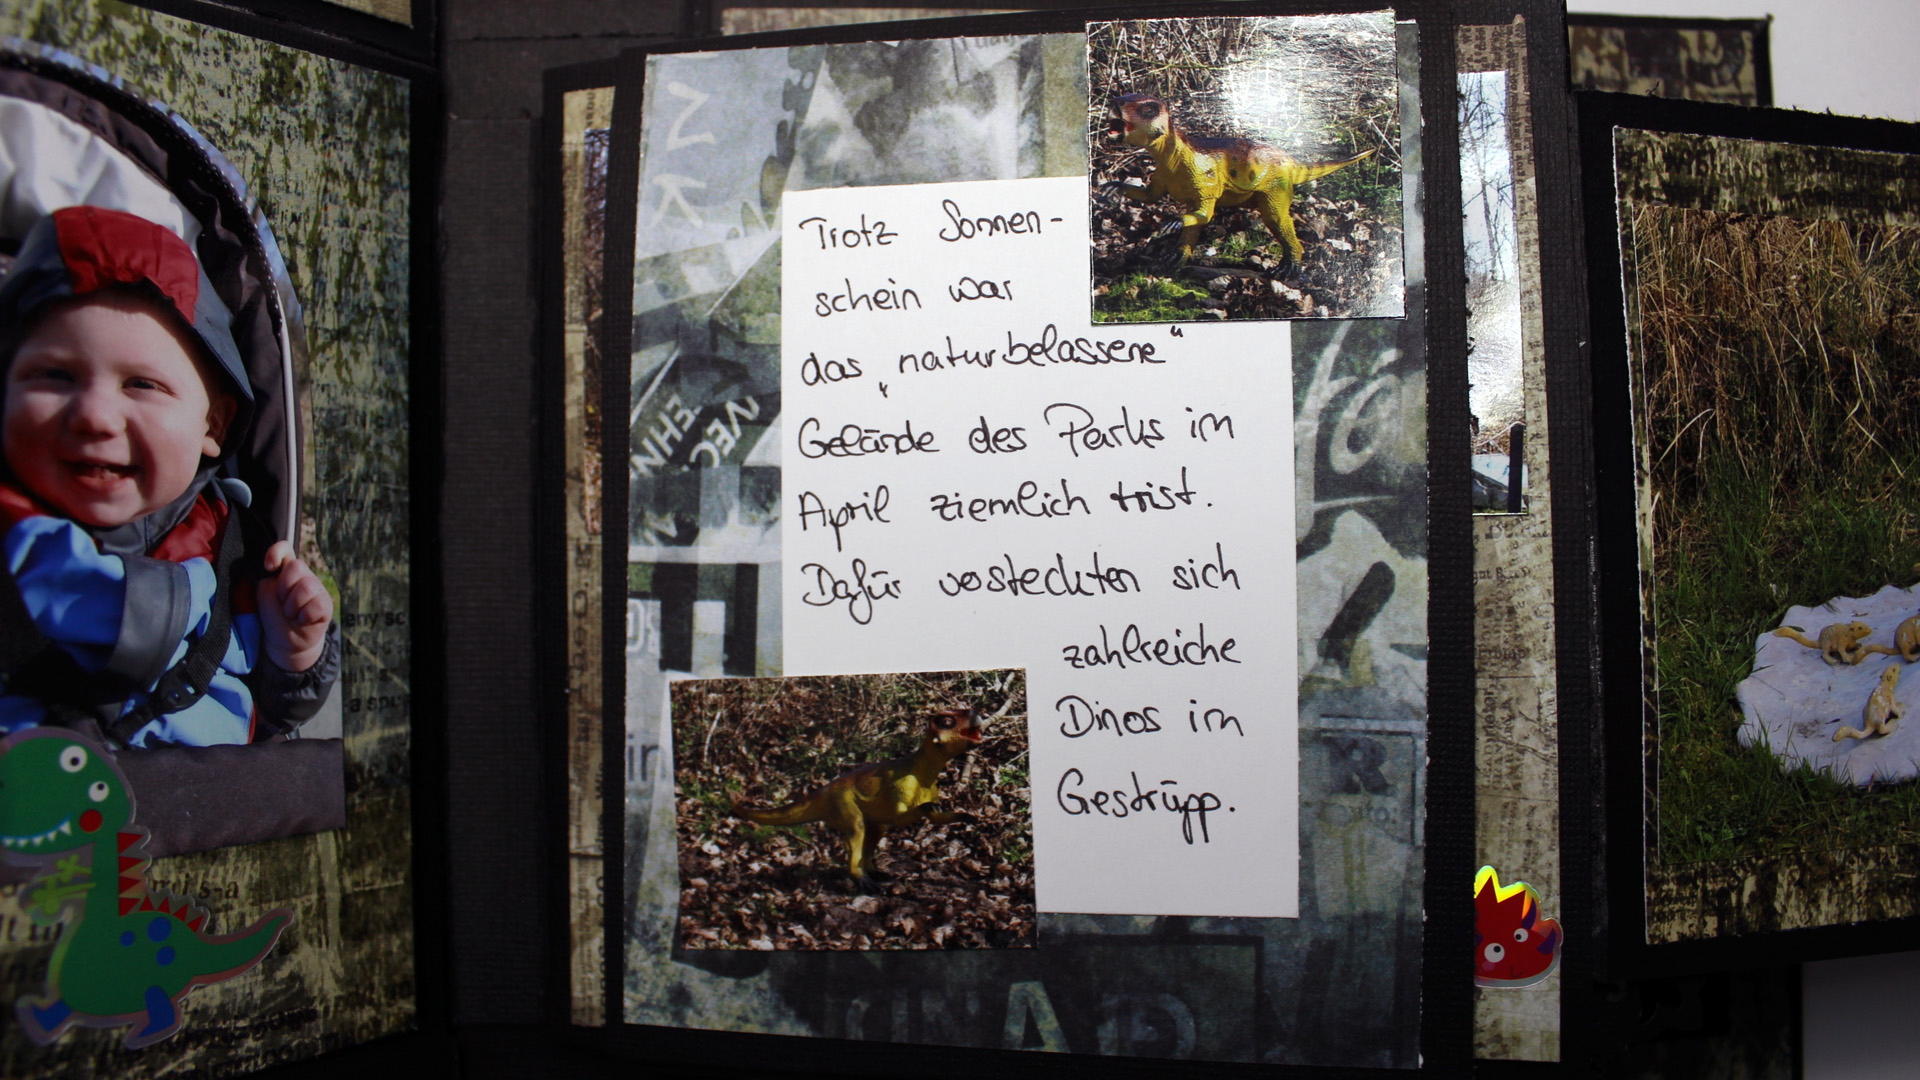 Trotz Sonnen-
schein war
das „naturbelassene“
Gelände des Parks im
April ziemlich trist.
Dafür versteckten sich
zahlreiche
Dinos im
Gestrüpp.